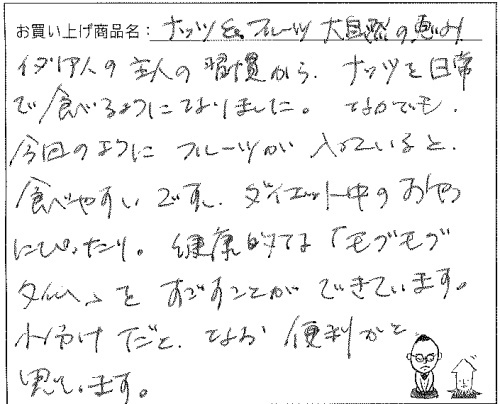 お買い上げ商品名: ナッツ&フルーツ 大自然の恵み
イタリア人の主人の習慣から、ナッツを日常
で食べるようになりました。なかでも、
今回のように フルーツが入っていると、
食べやすいです。ダイエット中のおやつ
にぴったり。健康的な「モグモグ
タイム」をすごすことができています。
小分けだと、なお便利かと
思います。